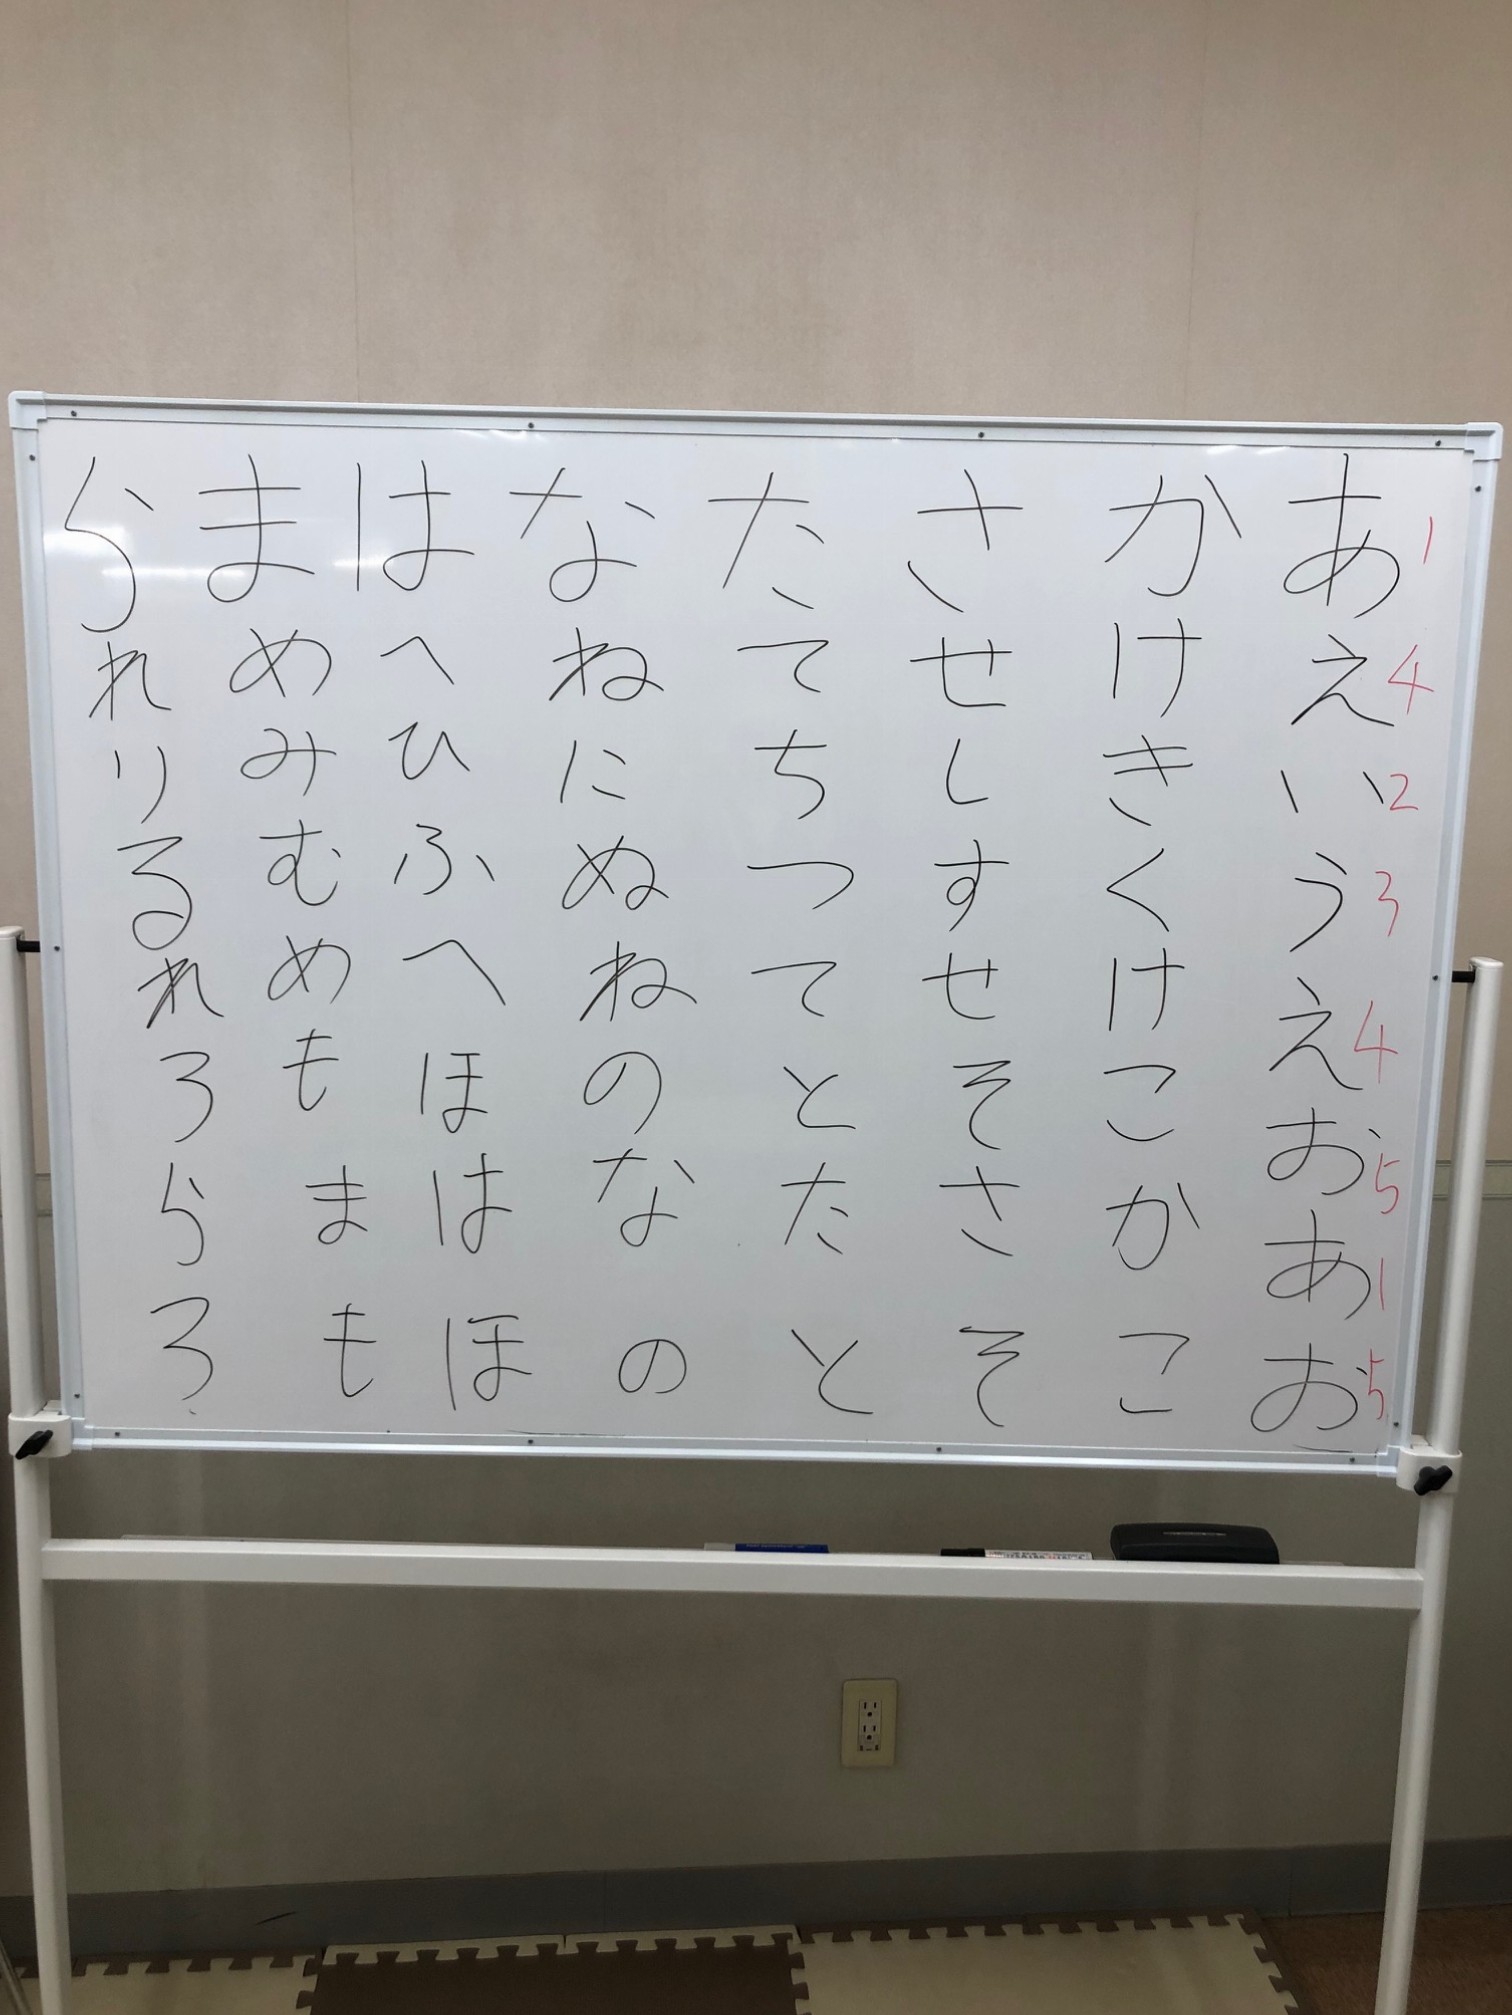 あえいうえおあお
1 4 2 3 4 5 1 5
かけきくけこかこ
させしすせそさそ
たてちつてとたと
なねにぬねのなの
はへひふへほはほ
まめみむめもまも
られりるれろらろ